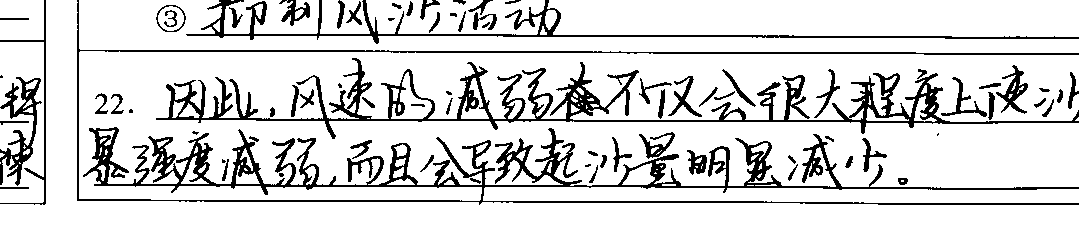 ③ 抑制风沙活动
22. 因此,风速的减弱不仅会很大程度上使沙
暴强度减弱,而且会导致起沙量明显减少。